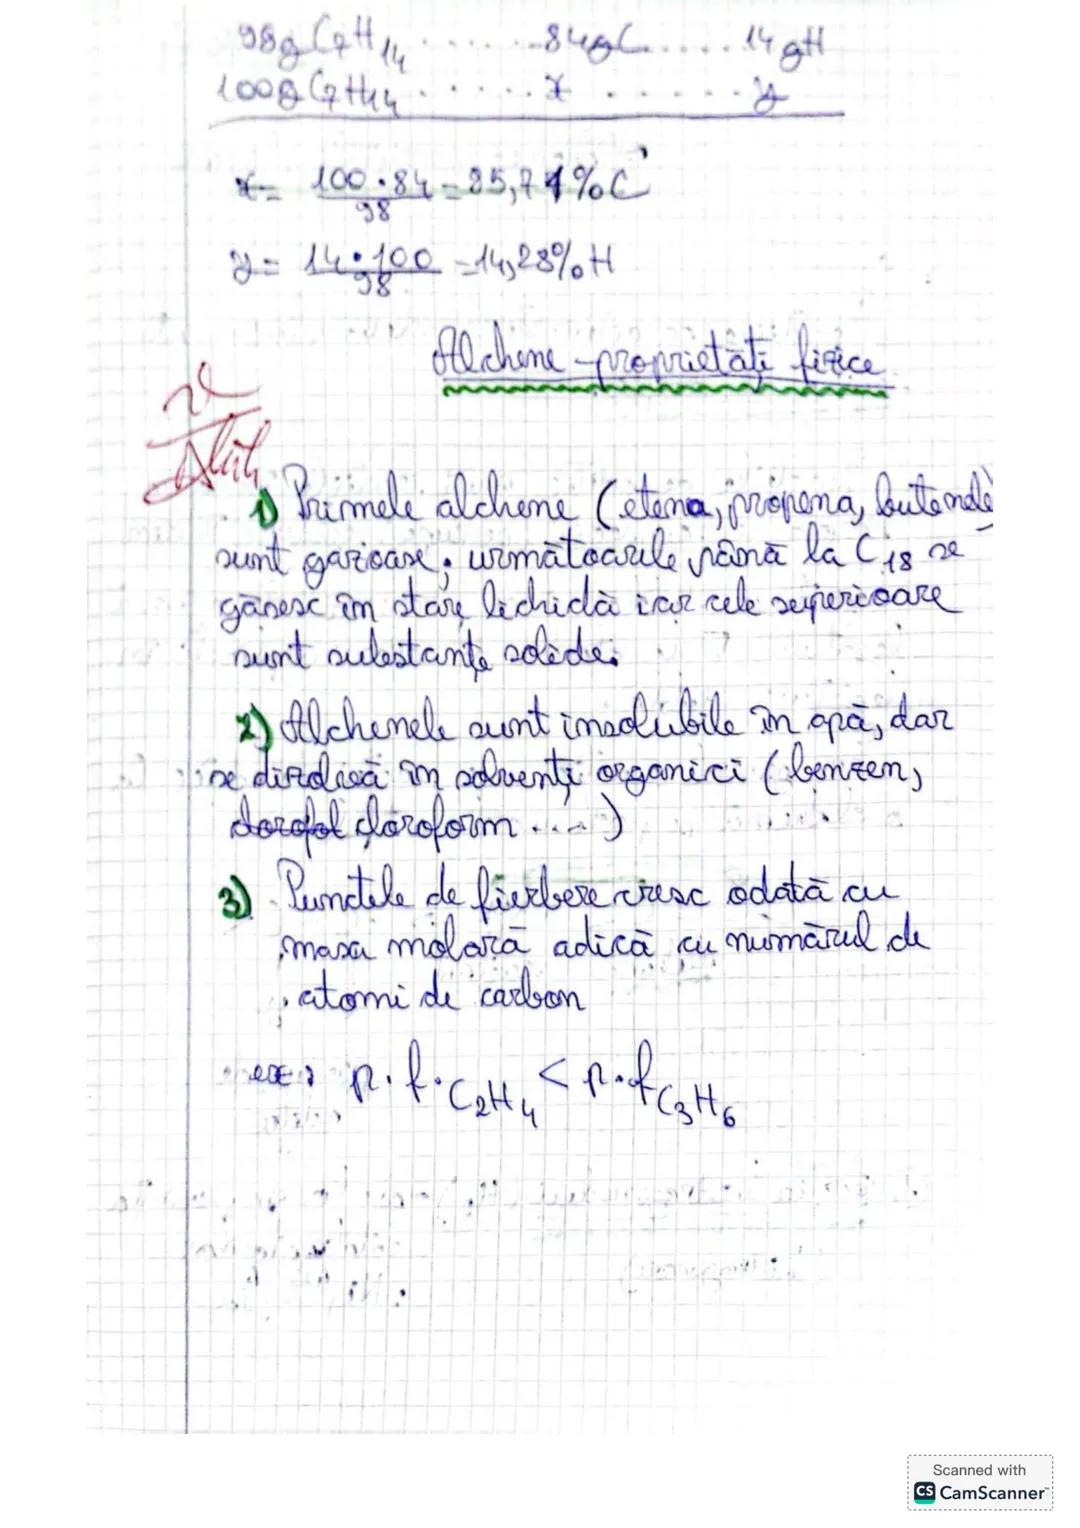 98g C7H14 ........ 84gC ..... 14gH
100g C7H14 ........ x ........ y
x = 100·84/98 = 85,71%C
y = 14·100/98 = 14,28%H
Alchene - proprietăți fizice
1) Primele alchene (etena, propena, butenele)
sunt gazoase; următoarele până la C18 se
găsesc în stare lichidă iar cele superioare
sunt substanțe solide;
2) Alchenele sunt insolubile în apă, dar
se dizolvă în solvenți organici (benzen,
cloroform ....)
3) Punctele de fierbere cresc odată cu
masa molară adică cu numărul de
atomi de carbon
ex: p.f. C2H4 < p.f C3H6
Scanned with
CS CamScanner